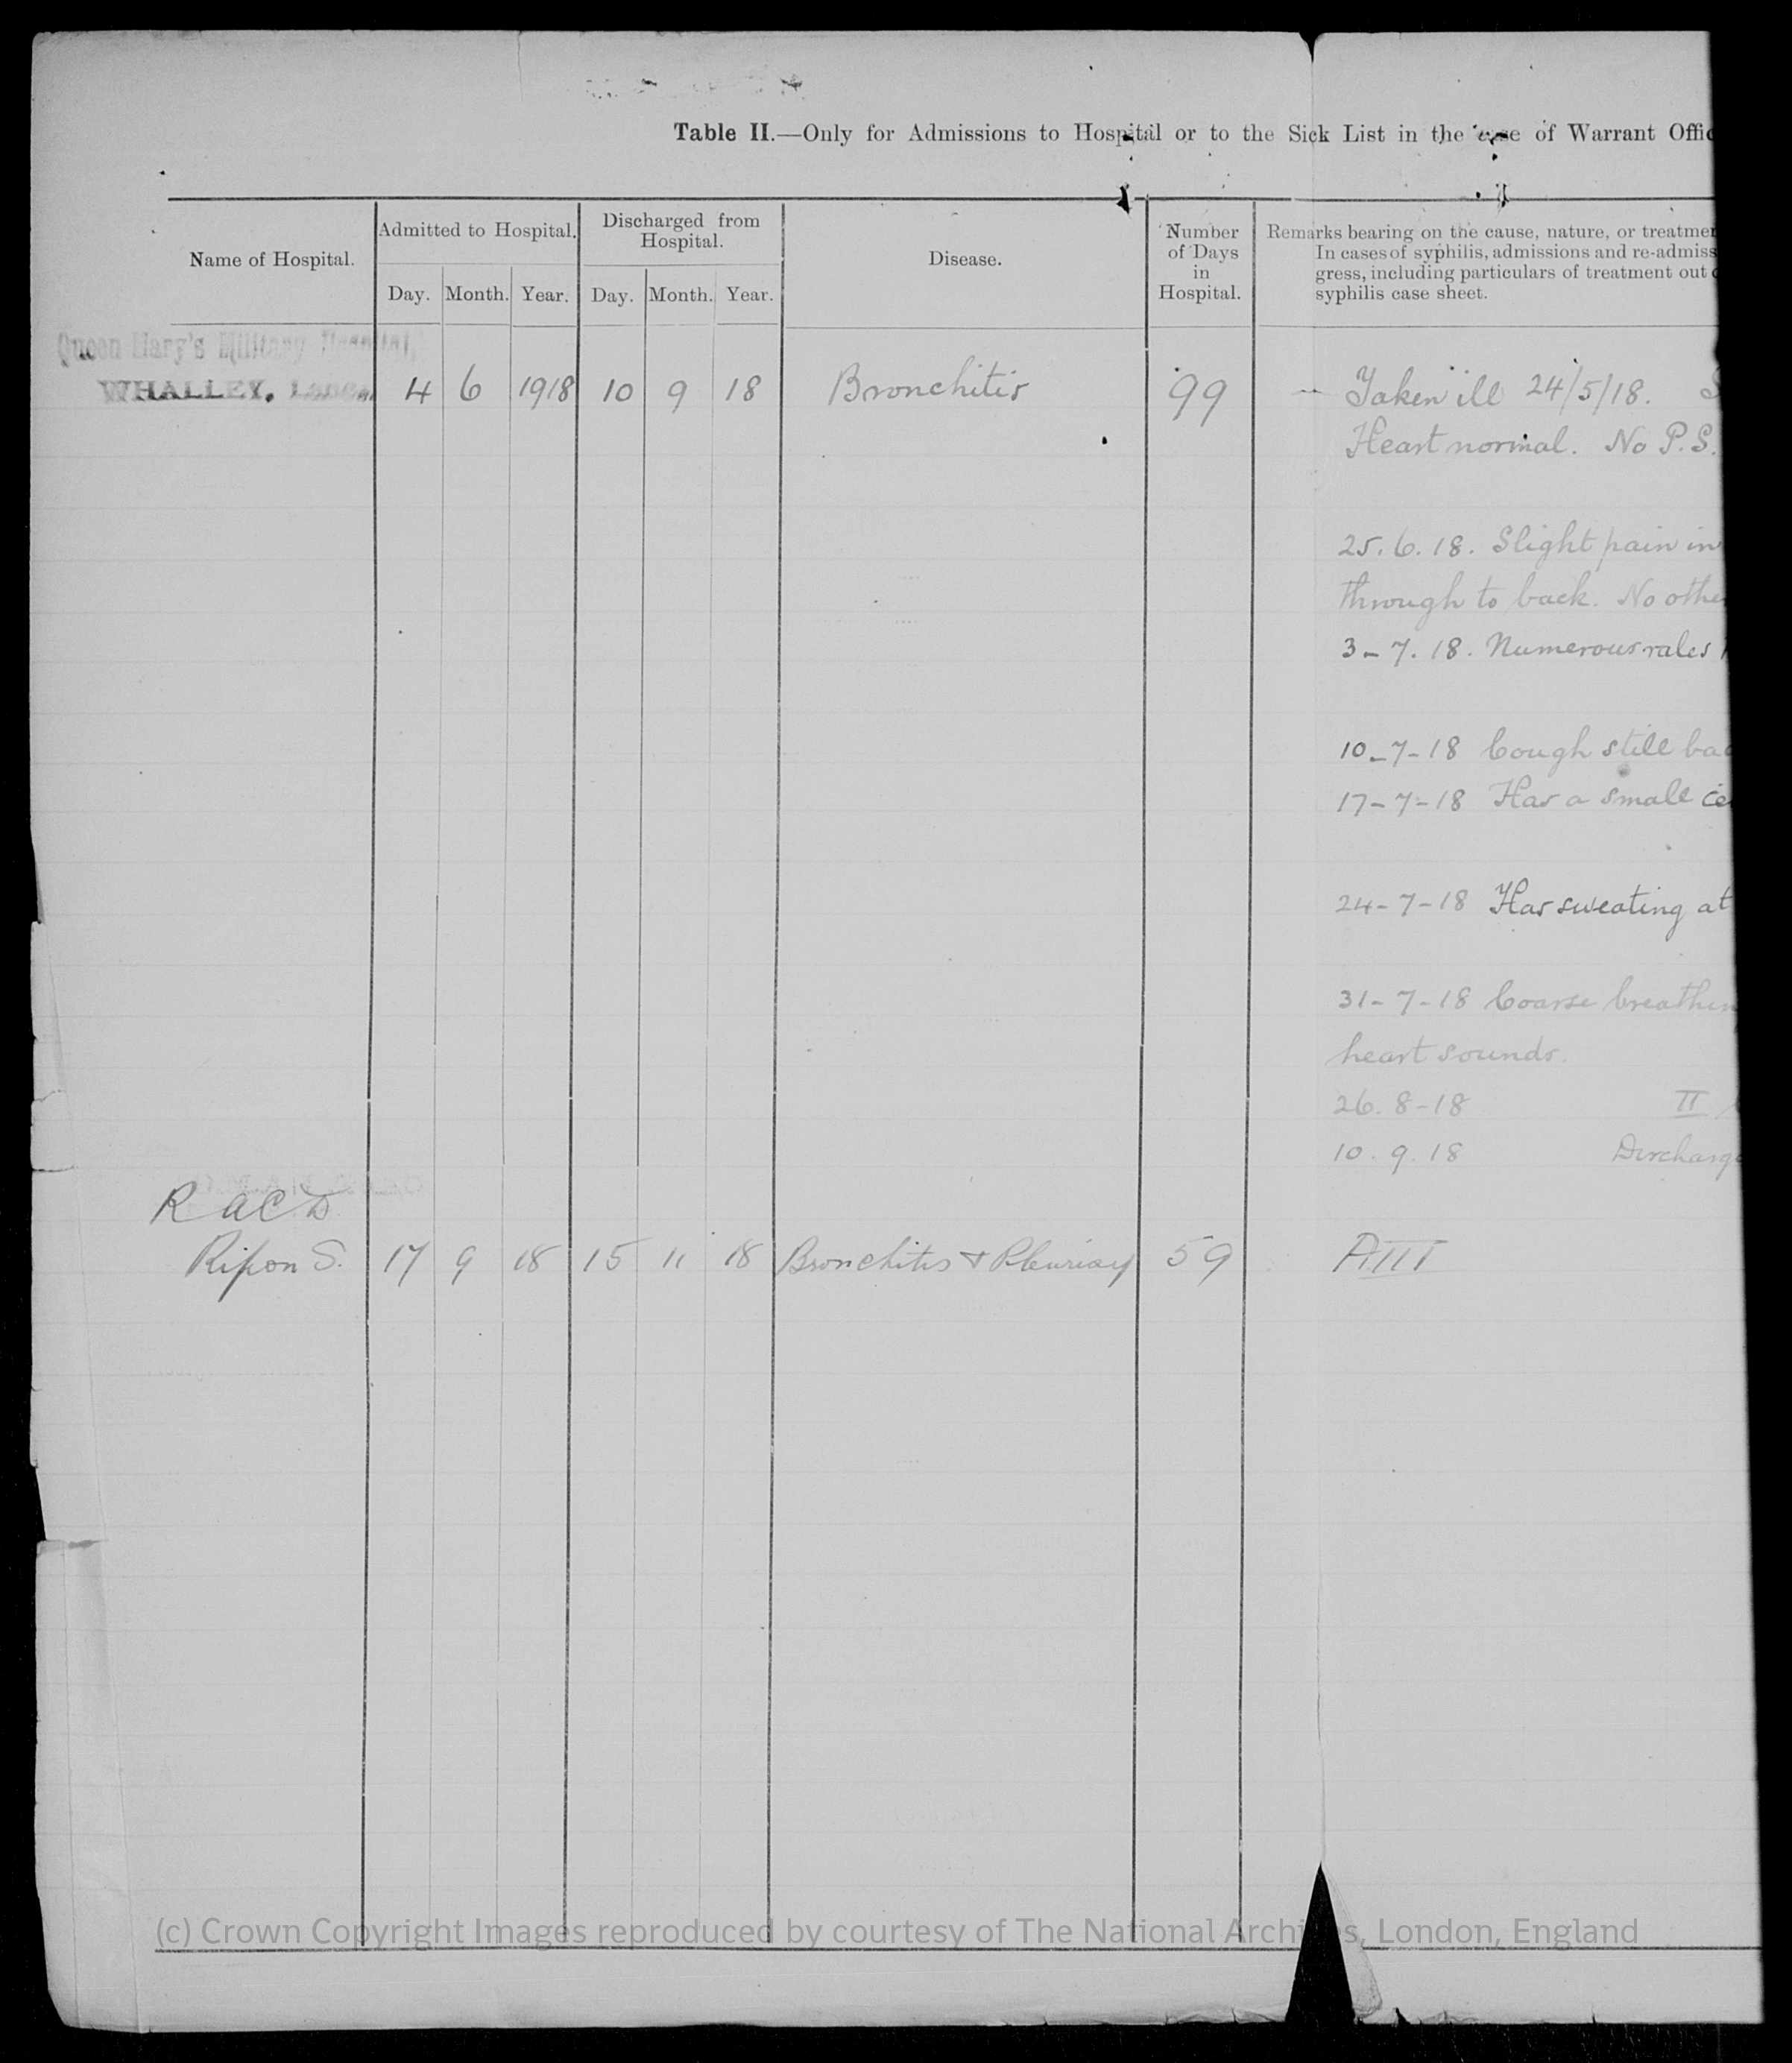 Table II.—Only for Admissions to Hospital or to the Sick List in the case of Warrant Offic
Name of Hospital.
Admitted to Hospital.
Discharged from Hospital.
Disease.
Number of Days in Hospital.
Remarks bearing on the cause, nature, or treatmen
In cases of syphilis, admissions and re-admiss
gress, including particulars of treatment out
syphilis case sheet.
Day. Month. Year. Day. Month. Year.
Queen Mary's Military Hospital,
WHALLEY, Lancs. 4 6 1918 10 9 18 Bronchitis 99 — Taken ill 24/5/18.
Heart normal. No P.S.
25.6.18. Slight pain in
through to back. No othe
3-7.18. Numerous rales
10-7-18 Cough still ba
17-7-18 Has a small
24-7-18 Has sweating at
31-7-18 Coarse breathin
heart sounds.
26.8-18 II
10.9.18 Discharg
R A C D
Ripon S. 17 9 18 15 11 18 Bronchitis & Pleurisy 59 AIII
(c) Crown Copyright Images reproduced by courtesy of The National Archives, London, England